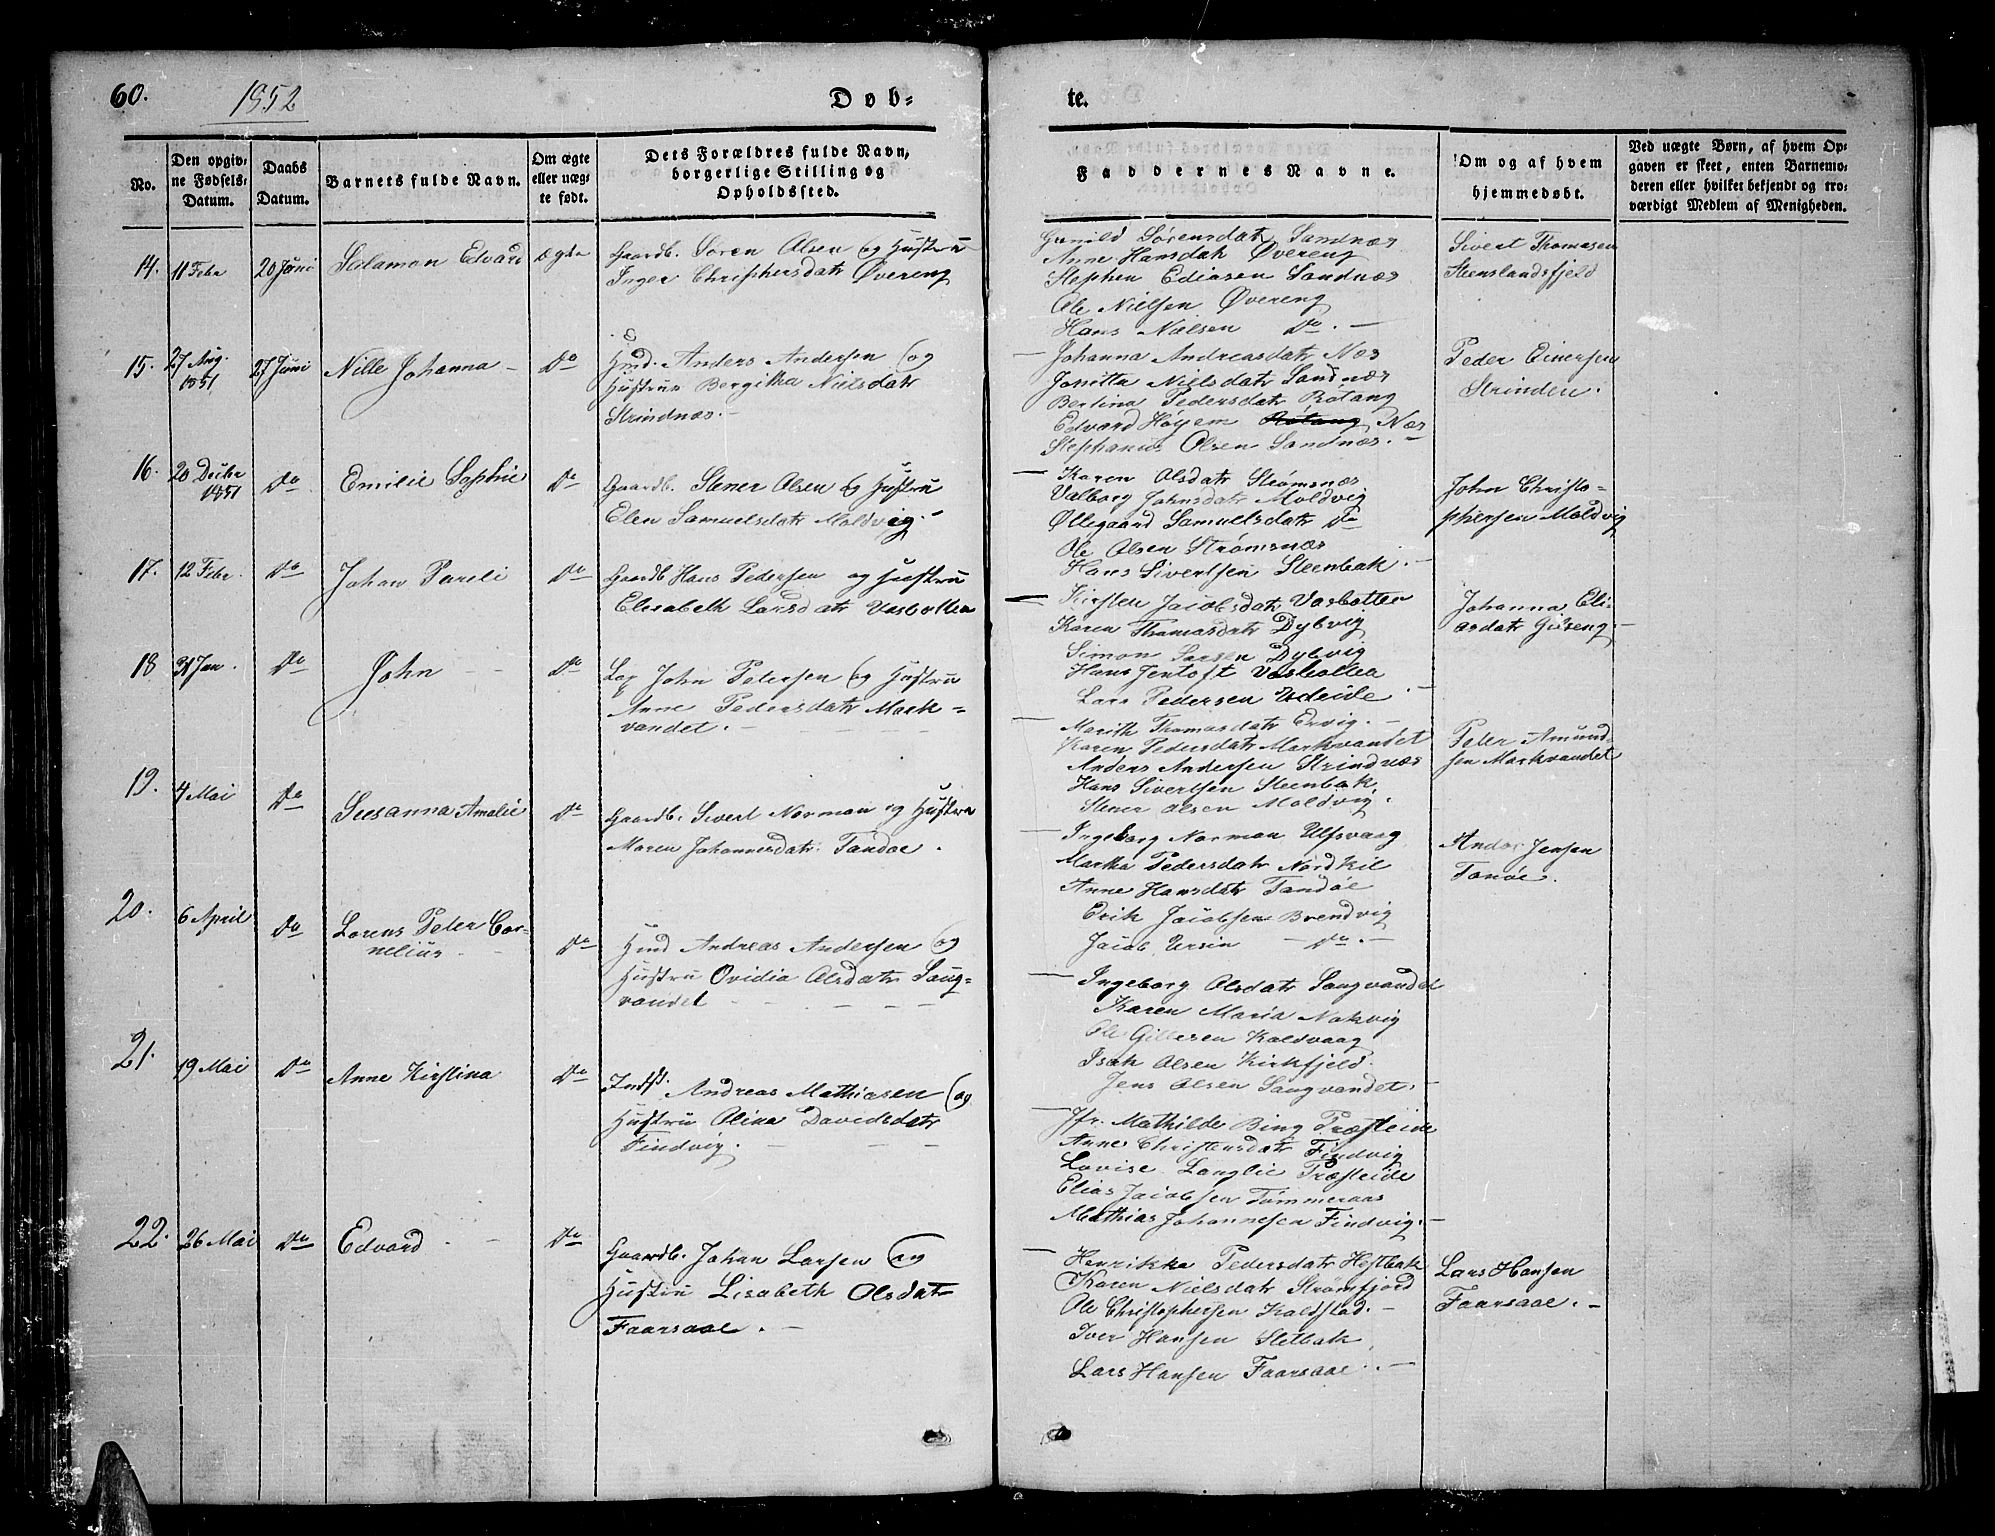 60.
1852
Døb-
te.
No.
Den opgiv-
ne Fødsels-
Datum.
Daabs
Datum.
Barnets fulde Navn.
Om ægte
eller uæg-
te født.
Dets Forældres fulde Navn,
borgerlige Stilling og
Opholdssted.
Faddernes Navne.
Om og af hvem
hjemmedøbt.
Ved uægte Børn, af hvem Op-
gaven er skeet, enten Barnemo-
deren eller hvilket bekjendt og tro-
værdigt Medlem af Menigheden.
14. 11 Febr 20 Juni Salamon Edvard ægte
Gaardb. Soren Olsen og Hustru
Inger Christophersdatr Øvereng
Gunild Sörensdatr Sandnæs
Anne Hansdatr Øvereng
Stephen Ediasen Sandnæs
Ole Nielsen Øvereng
Hans Nielsen Do. -
Sivert Thomasen
Steenslandsfjeld
15. 27 Aug. 1851, 27 Juni Nille Johanna - Do
Hmd. Anders Andersen og
Hustrue Bergitha Nielsdatr
Strindnæs. -
- Johanna Andreasdatr Næs
Jonetta Nielsdatr Sandnæs
Bertina Pedersdatr Rötang
Edvard Høyem Rötang Næs
Stephanus Olsen Sandnæs. -
Peder Einersen
Strinden.
16. 20 Decbr 1851 Do Emilie Sophie Do
Gaardb. Stener Olsen og Hustru
Elen Samuelsdatr Moldvig. -
- Karen Olsdatr Strömsnæs
Valborg Johnsdatr Moldvig
Øllegaard Samuelsdatr Do
Ole Olsen Strømsnæs
Hans Sivertsen Steenbak. -
John Christo-
phersen Moldvig
17. 12 Febr. Do Johan Pareli Do
Gaardb Hans Pedersen og Hustru
Elisabeth Larsdatr Vasbotten
- Kirsten Jacobsdatr Vasbotten
Karen Thomasdatr Dybvig
Simon Larsen Dybvig
Hans Jentoft Vasbotten
Lars Pedersen
Johanna Eli-
asdatr -
18 31 Jan. Do John Do
Lap John Petersen og Hustru
Anne Pedersdatr Mark-
vandet. -
- Marith Thomasdatr
Karen Pedersdatr Markvandet
Anders Andersen Strindnæs
Hans Sivertsen Steenbak,
Stener Olsen Moldvig.
Peder Amund-
sen Markvandet
19. 4 Mai Do Susanna Amalie Do
Gaardb. Sivert Norman og Hustru
Maren Johannesdatr. Tandøe.
- Ingeborg Norman Ulfsvaag
Martha Pedersdatr Nordkil
Anne Hansdatr Tandöe
Erik Jacobsen Brendvig
Jacob Ursin - Do. -
Jensen
Tanöe.
20. 6 April Do Lorens Peter Cor-
nelius Do
Hmd Andreas Andersen og
Hustru Ovidia Olsdatr Saug-
vandet
- Ingeborg Olsdatr Saugvandet
Karen Maria Nakvig
Ole Gillesen Kaldvaag
Isak Olsen Kirkfjeld
Jens Olsen Saugvandet. -
21. 19 Mai Do Anne Kirstina Do
Indst. Andreas Mathiasen og
Hustru Olina Davidsdatr
Findvig.
- Jfr. Mathilde Bing Præsteide
Anne Christensdatr Findvig
Lovise Langlie Præsteide
Elias Jacobsen Tømmeraas
Mathias Johannesen Findvig. -
22. 26 Mai Do Edvard - Do
Gaardb. Johan Larsen og
Hustru Lisabeth Olsdatr
Faarsaae. -
- Henrikka Pedersdatr Hestbak
Karen Nielsdatr Strømfjord
Ole Christophersen Kaldstad. -
Iver Hansen Sletbak
Lars Hansen Faarsaae. -
Lars Hansen
Faarsaae. -